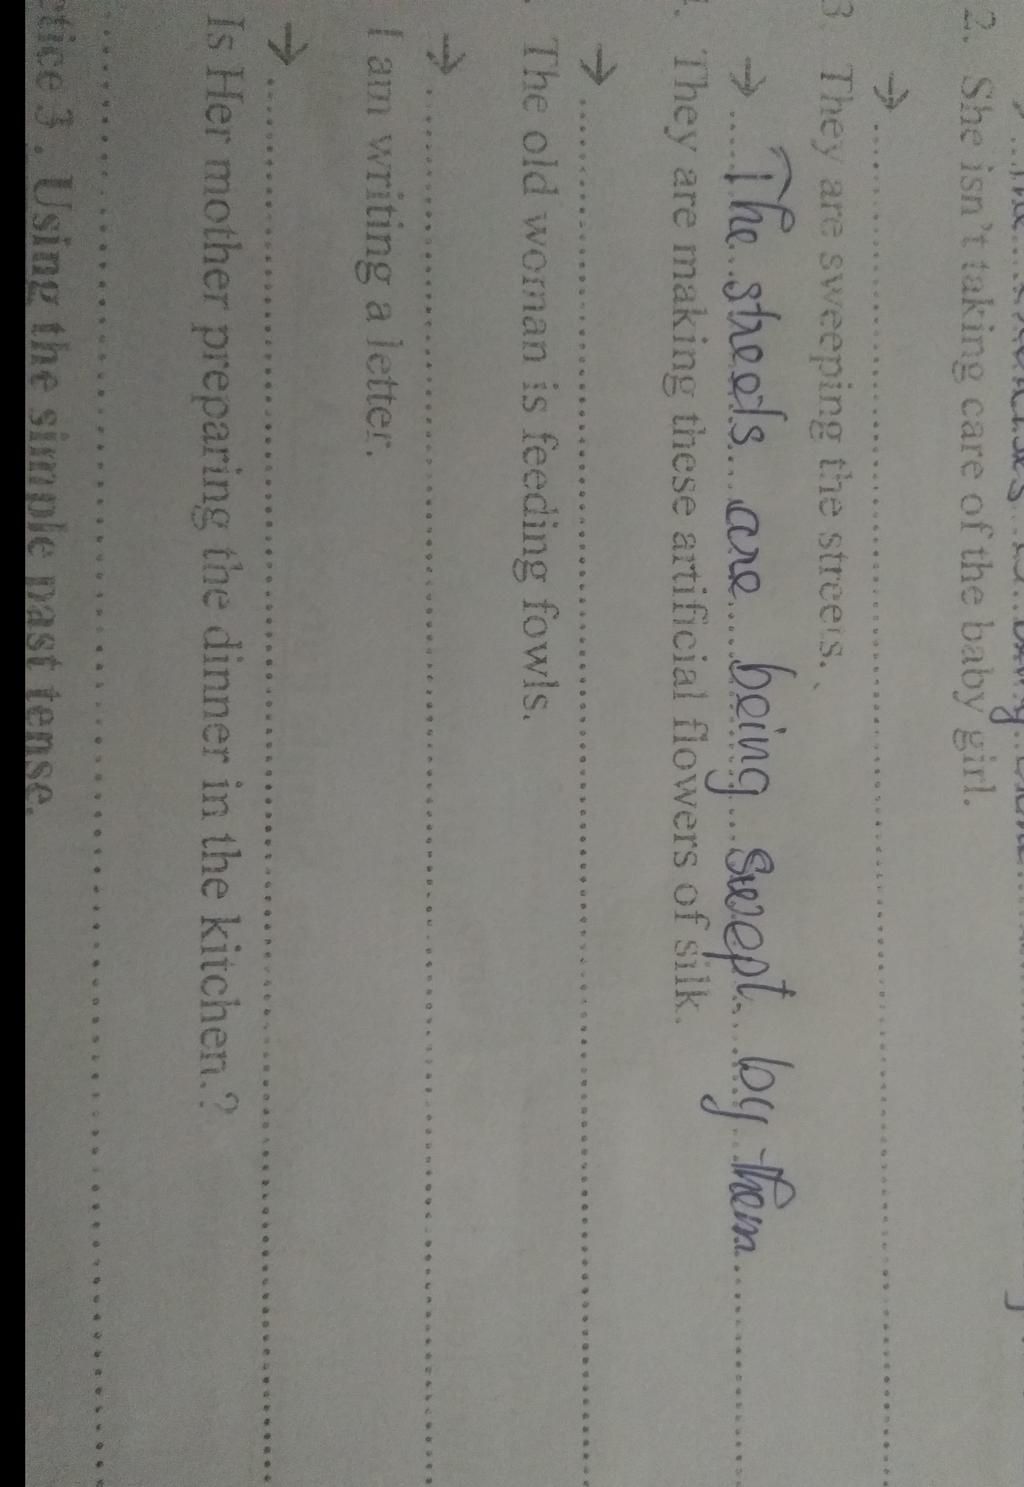 2. She isn't taking care of the baby girl.
→
3 They are sweeping the streets.
→ The streets are being swept by them
They are making these artificial flowers of silk.
→
The old woman is feeding fowls.
→
I am writing a letter.
→
Is Her mother preparing the dinner in the kitchen.?
3. Using the simple past tense.